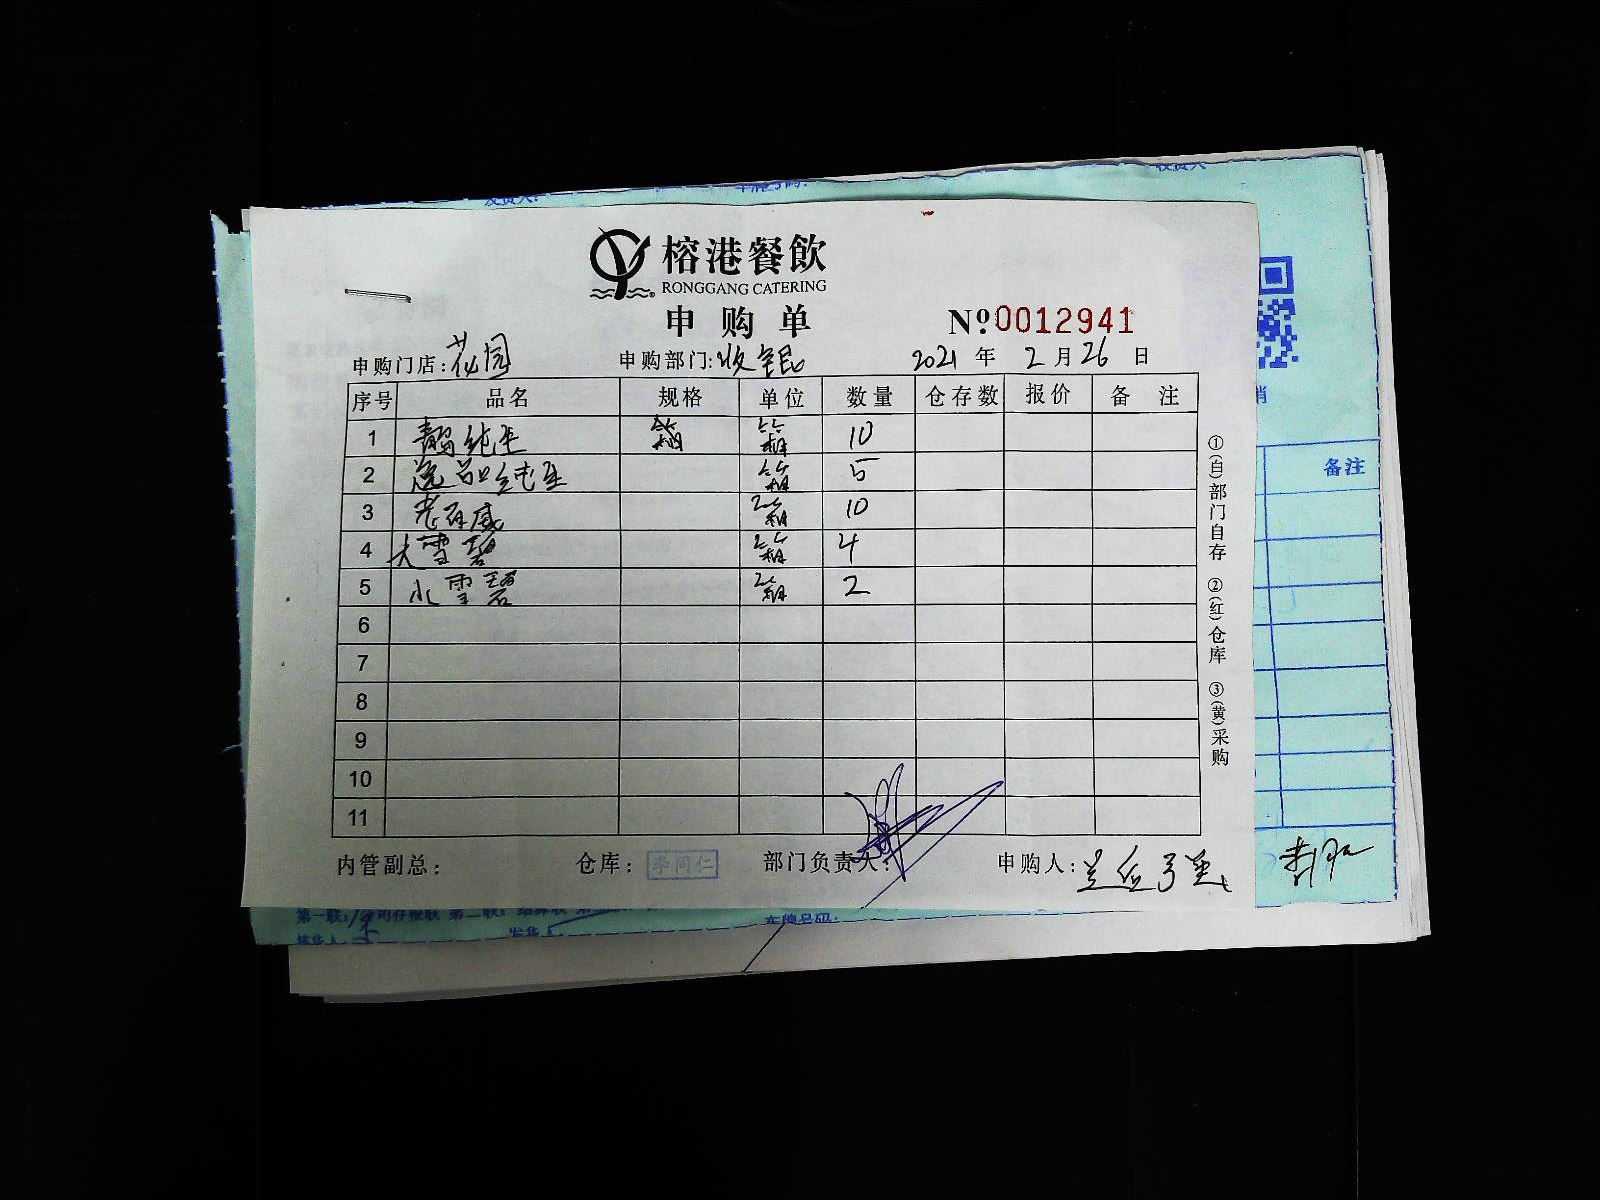 榕港餐飲
RONGGANG CATERING
申购单
Nº 0012941
申购门店: 花园 申购部门: 收银 2021 年 2 月 26 日
序号 品名 规格 单位 数量 仓存数 报价 备注
1 青岛纯生 箱 箱 10
2 逸品纯生 箱 5
3 老百威 箱 10
4 大雪碧 箱 4
5 小雪碧 箱 2
6
7
8
9
10
11
内管副总: 仓库: 李同仁 部门负责人: 申购人:
①(白)部门自存 ②(红)仓库 ③(黄)采购
备注
发货人:
车牌号码: